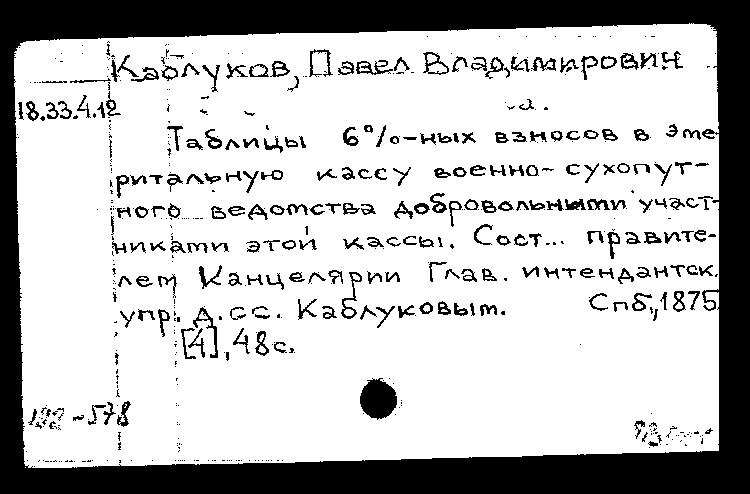 Каблуков, Павел Владимирович
18.33.4.12
Таблицы 6%-ных взносов в эме-
ритальную кассу военно-сухопут-
ного ведомства добровольными участ-
никами этой кассы. Сост... правите-
лем Канцелярии Глав. интендантск.
упр. д.сс. Каблуковым. Спб., 1875
[4], 48 с.
192-578